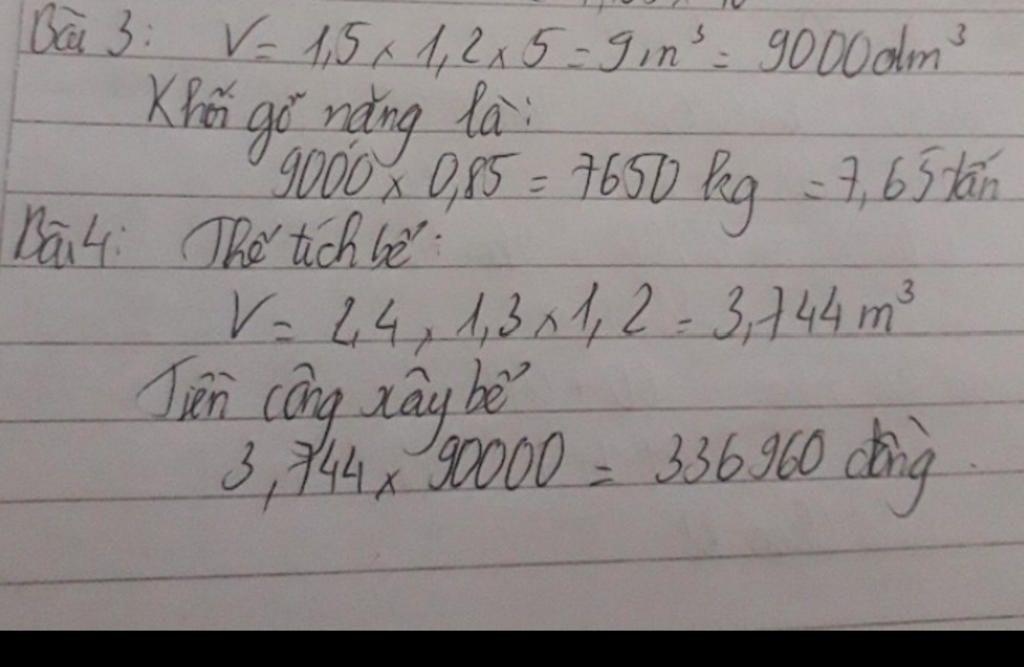 Bài 3: V = 1,5 x 1,2 x 5 = 9 m³ = 9000dm³
Khối gỗ nặng là:
9000 x 0,85 = 7650 kg = 7,65 tấn
Bài 4: Thể tích bể:
V = 2,4 x 1,3 x 1,2 = 3,744 m³
Tiền công xây bể
3,744 x 90000 = 336960 đồng.